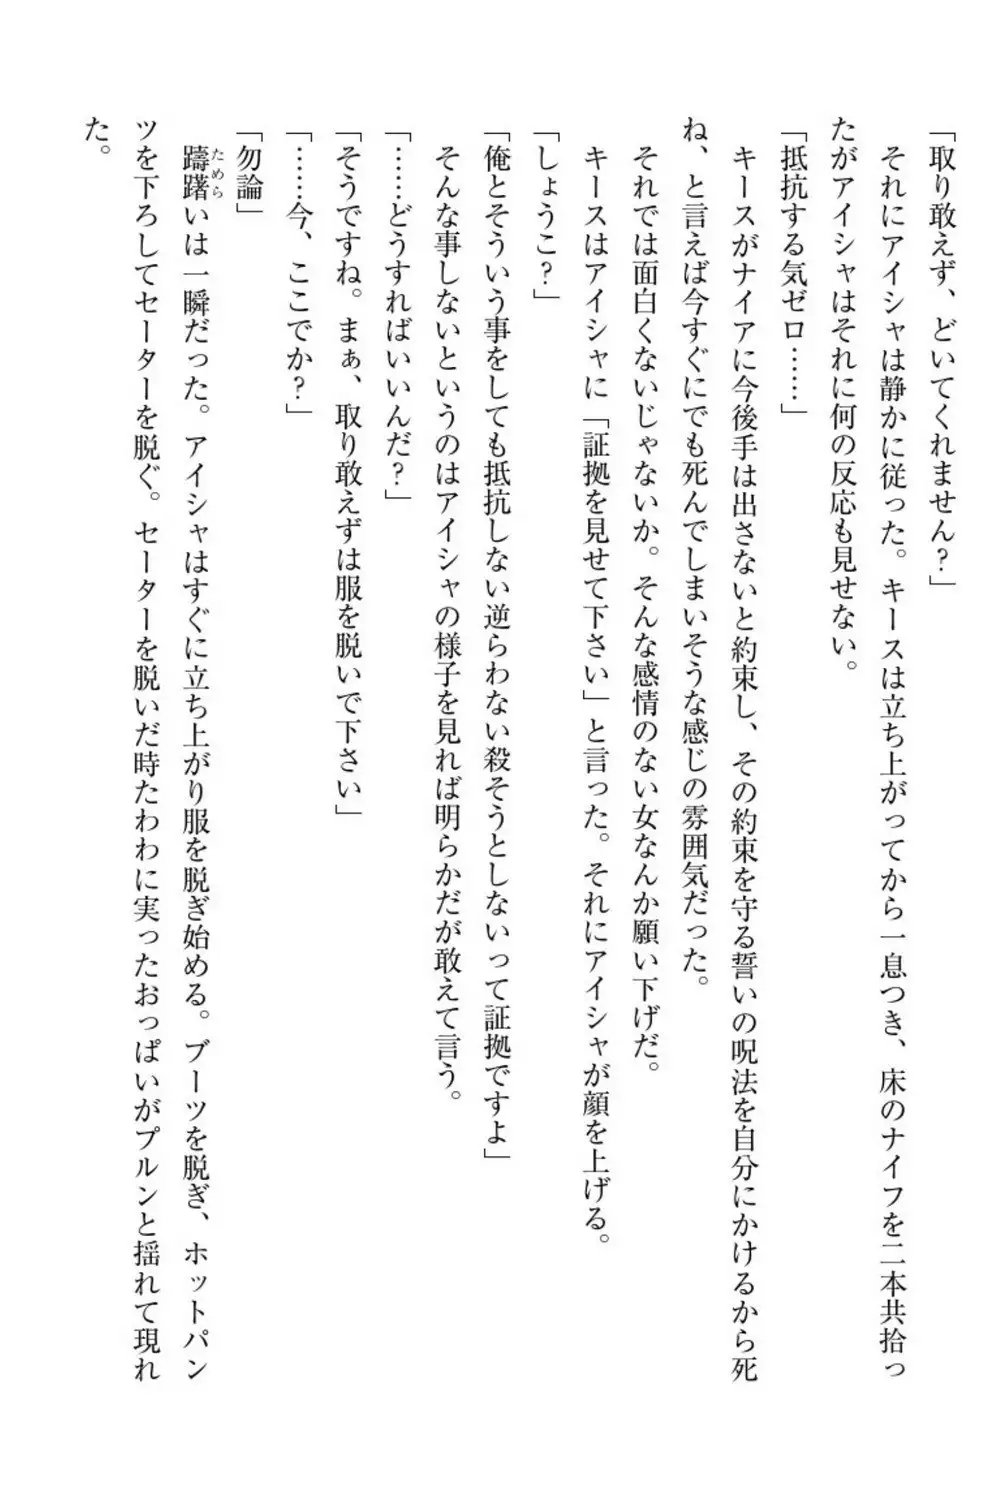 「取り敢えず、どいてくれません?」
それにアイシャは静かに従った。キースは立ち上がってから一息つき、床のナイフを二本共拾っ
たがアイシャはそれに何の反応も見せない。
「抵抗する気ゼロ……」
キースがナイアに今後手は出さないと約束し、その約束を守る誓いの呪法を自分にかけるから死
ね、と言えば今すぐにでも死んでしまいそうな感じの雰囲気だった。
それでは面白くないじゃないか。そんな感情のない女なんか願い下げだ。
キースはアイシャに「証拠を見せて下さい」と言った。それにアイシャが顔を上げる。
「しょうこ?」
「俺とそういう事をしても抵抗しない逆らわない殺そうとしないって証拠ですよ」
そんな事しないというのはアイシャの様子を見れば明らかだが敢えて言う。
「……どうすればいいんだ?」
「そうですね。まぁ、取り敢えずは服を脱いで下さい」
「……今、ここでか?」
「勿論」
躊躇いは一瞬だった。アイシャはすぐに立ち上がり服を脱ぎ始める。ブーツを脱ぎ、ホットパン
ためら
ツを下ろしてセーターを脱ぐ。セーターを脱いだ時たわわに実ったおっぱいがプルンと揺れて現れ
た。